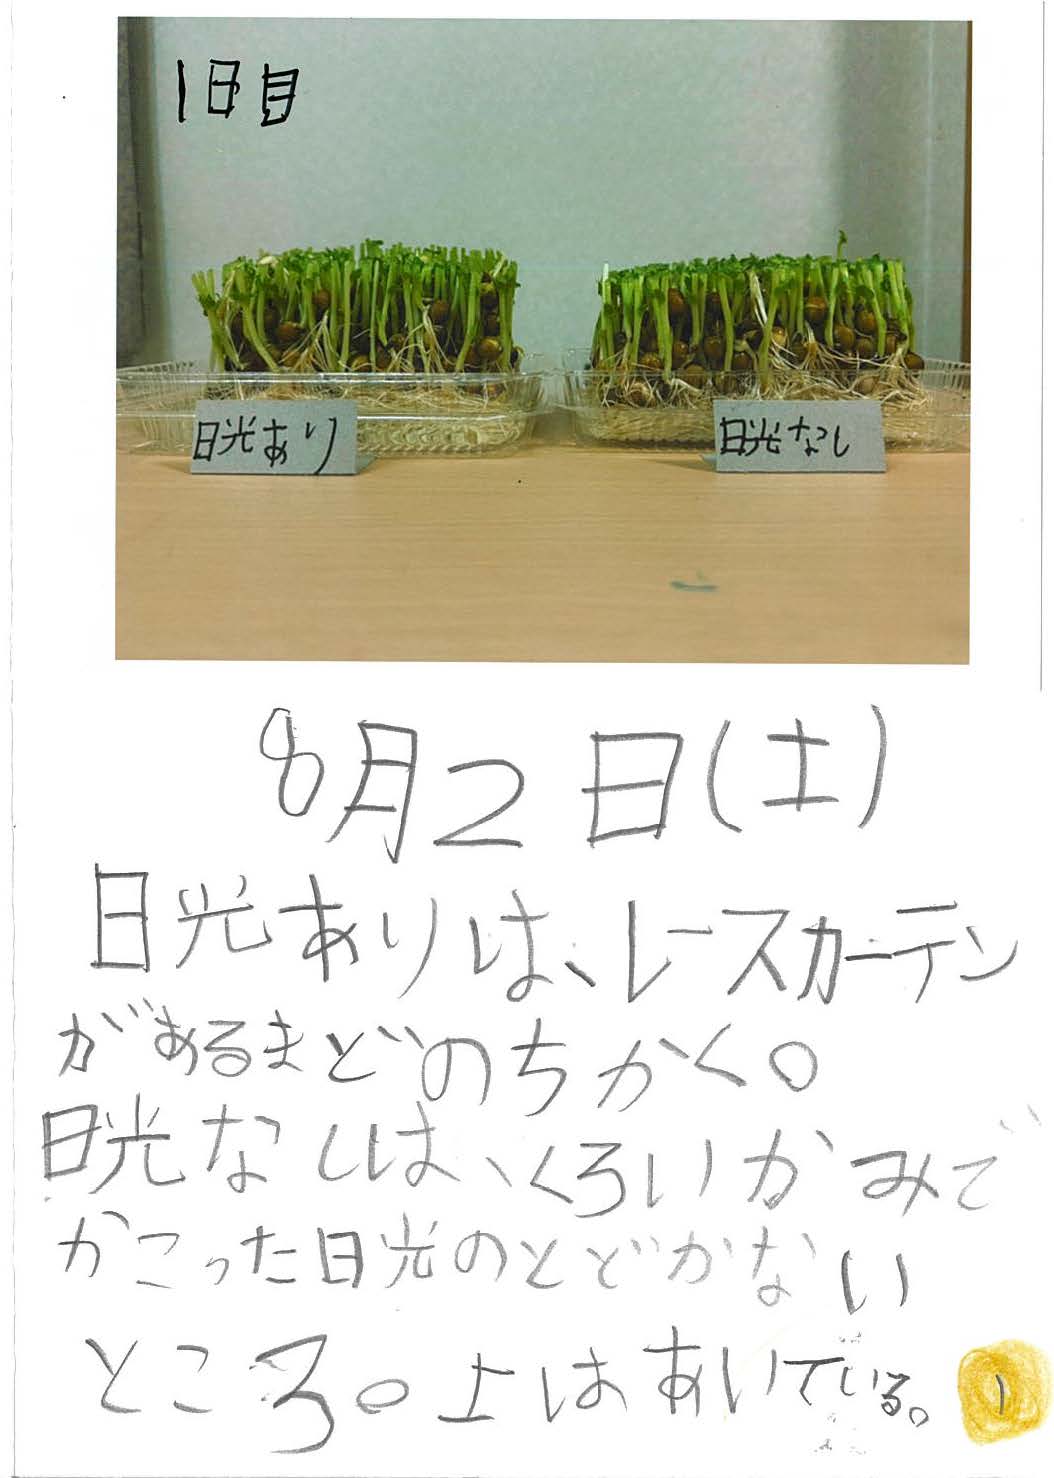 1日目
日光あり
日光なし
8月2日(土)
日光ありは、レースカーテン
があるまどのちかく。
日光なしは、くろいかみで
かこった日光のとどかない
ところ。上はあいている。
1